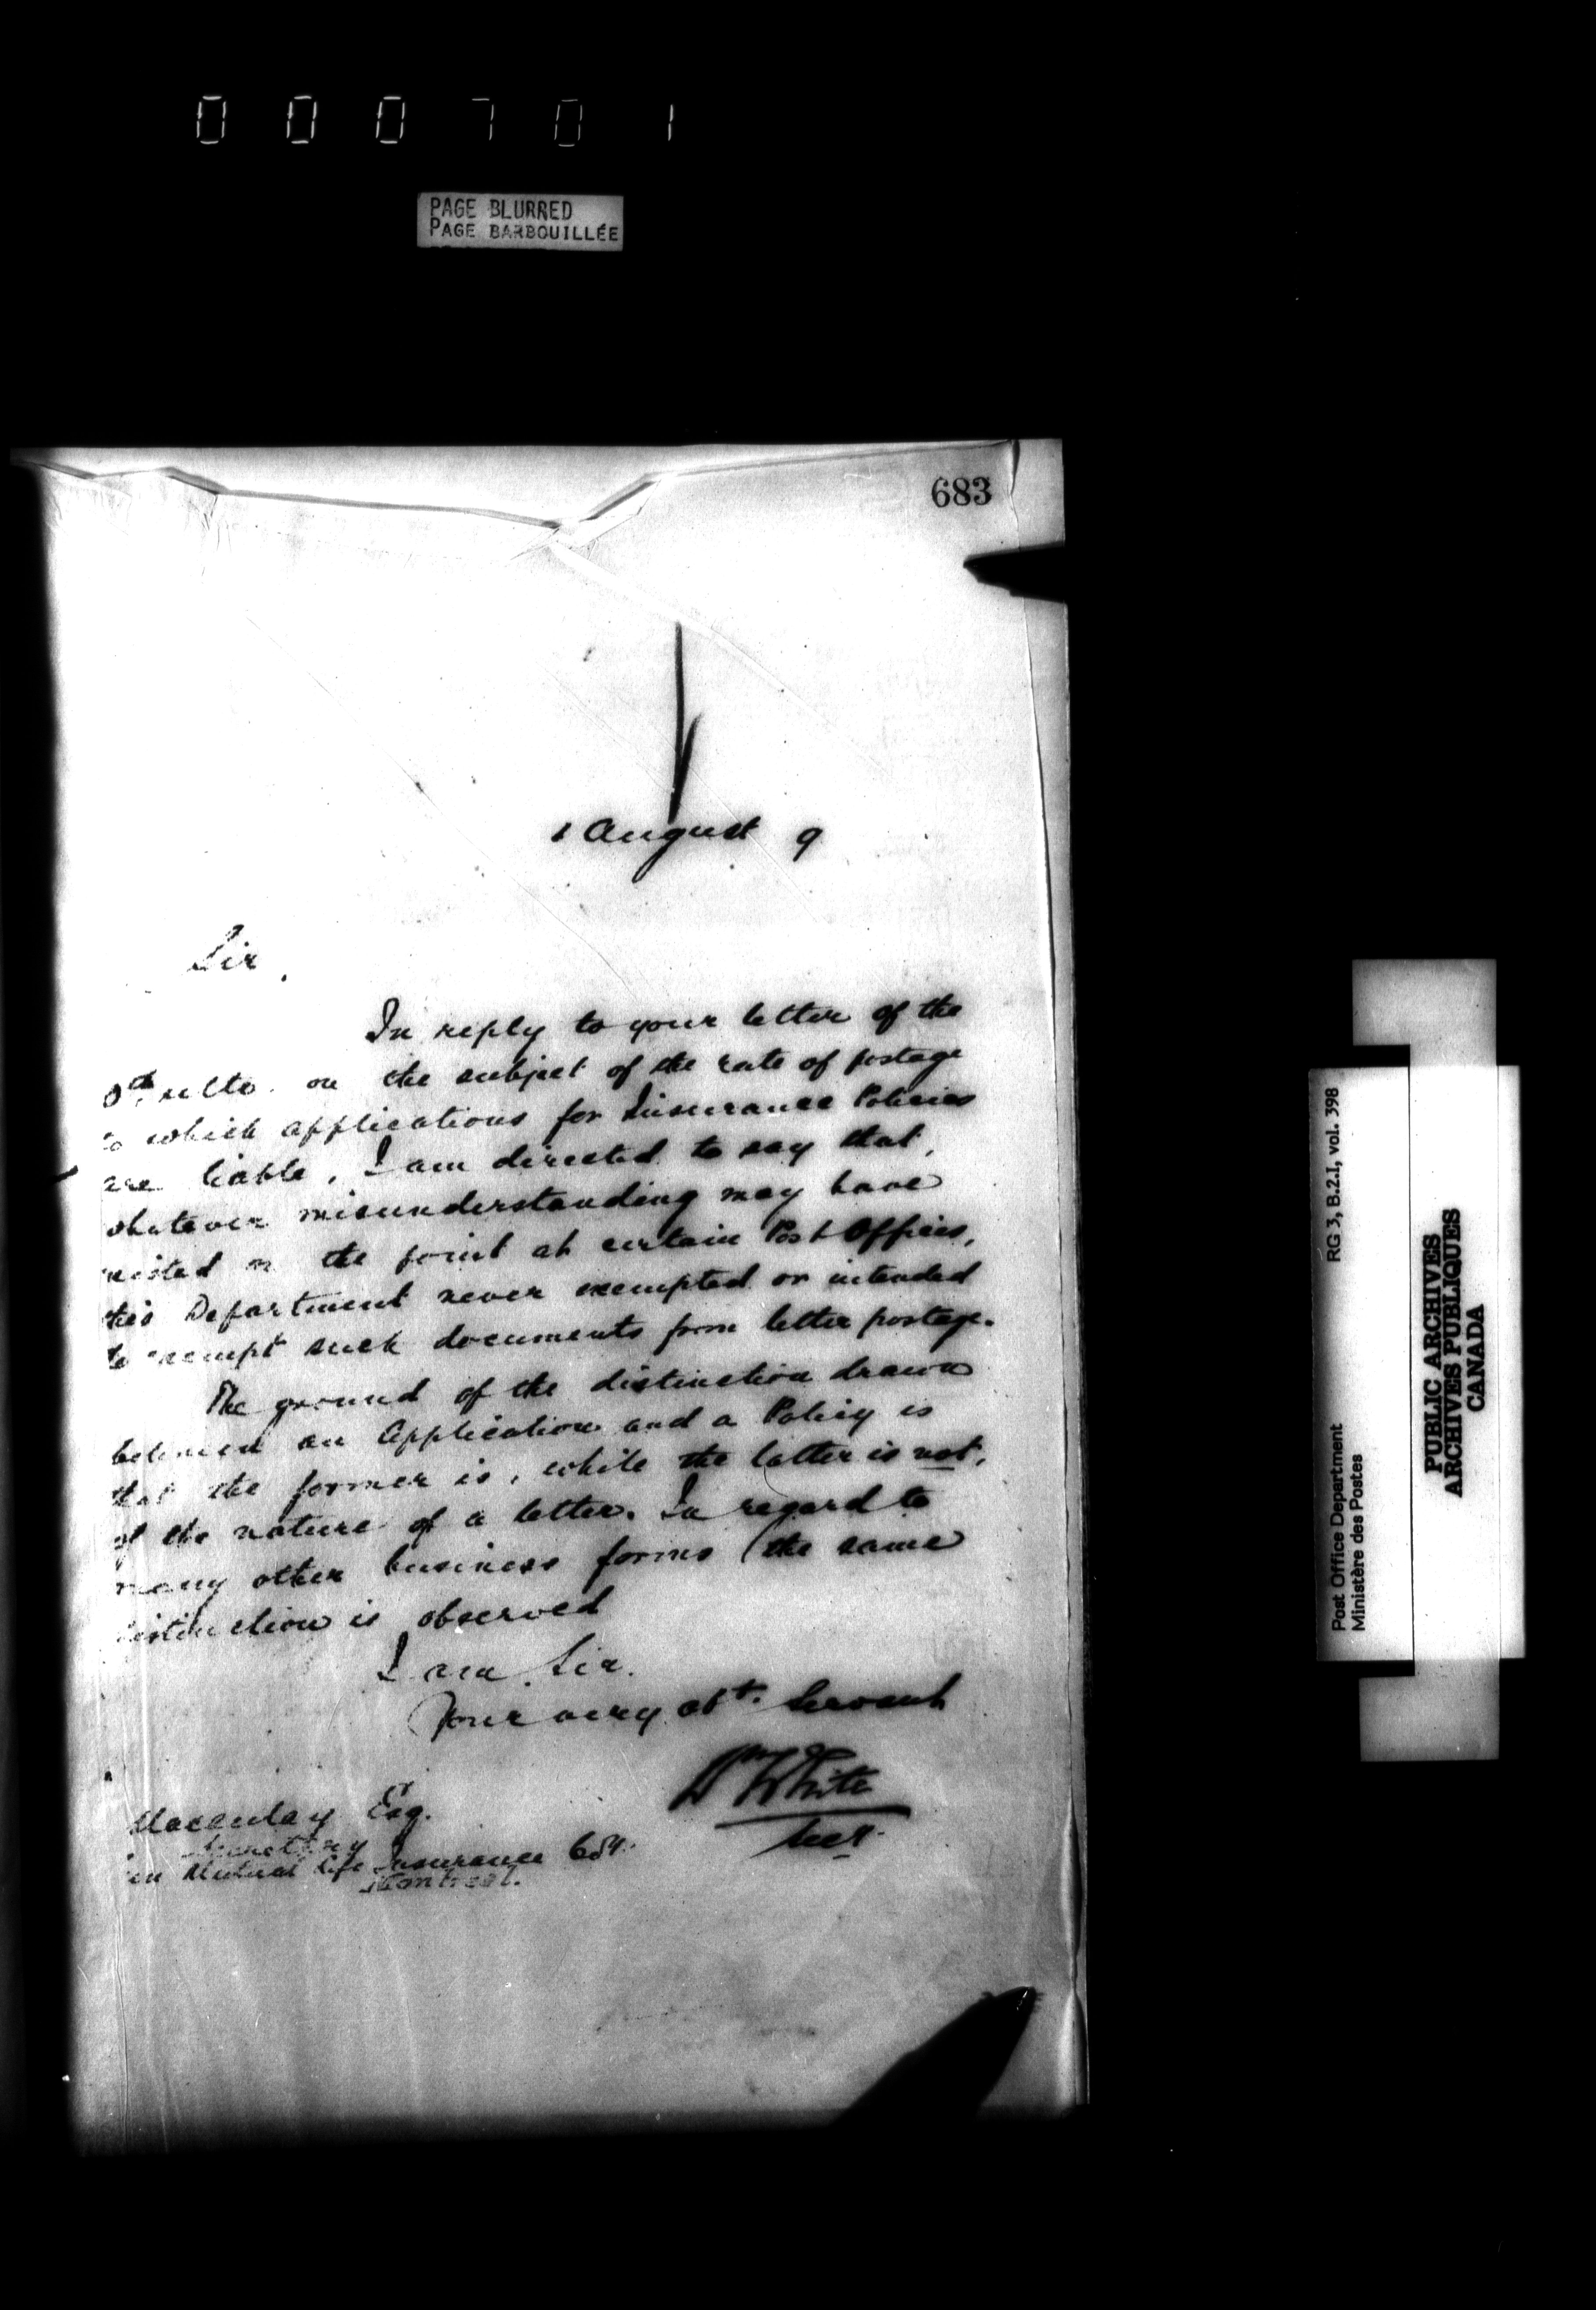 000701
PAGE BLURRED
PAGE BARBOUILLÉE
683
1 August 9
Sir.
In reply to your letter of the
0th ulto. on the subject of the rate of postage
to which applications for Insurance Policies
are liable, I am directed to say that,
whatever misunderstanding may have
xisted on the point at certain Post Offices,
this Department never exempted or intended
to exempt such documents from letter postage.
The ground of the distinction drawn
between an Application and a Policy is
that the former is, while the latter is not,
of the nature of a letter. In regard to
many other business forms the same
distinction is observed
I am Sir.
Your very obt. Servant
Wm White
Secy.
Macaulay Esq.
Secretary
un Mutual Life Insurance Coy.
Montreal.
RG 3, B.2.I, vol. 398
Post Office Department
Ministère des Postes
PUBLIC ARCHIVES
ARCHIVES PUBLIQUES
CANADA